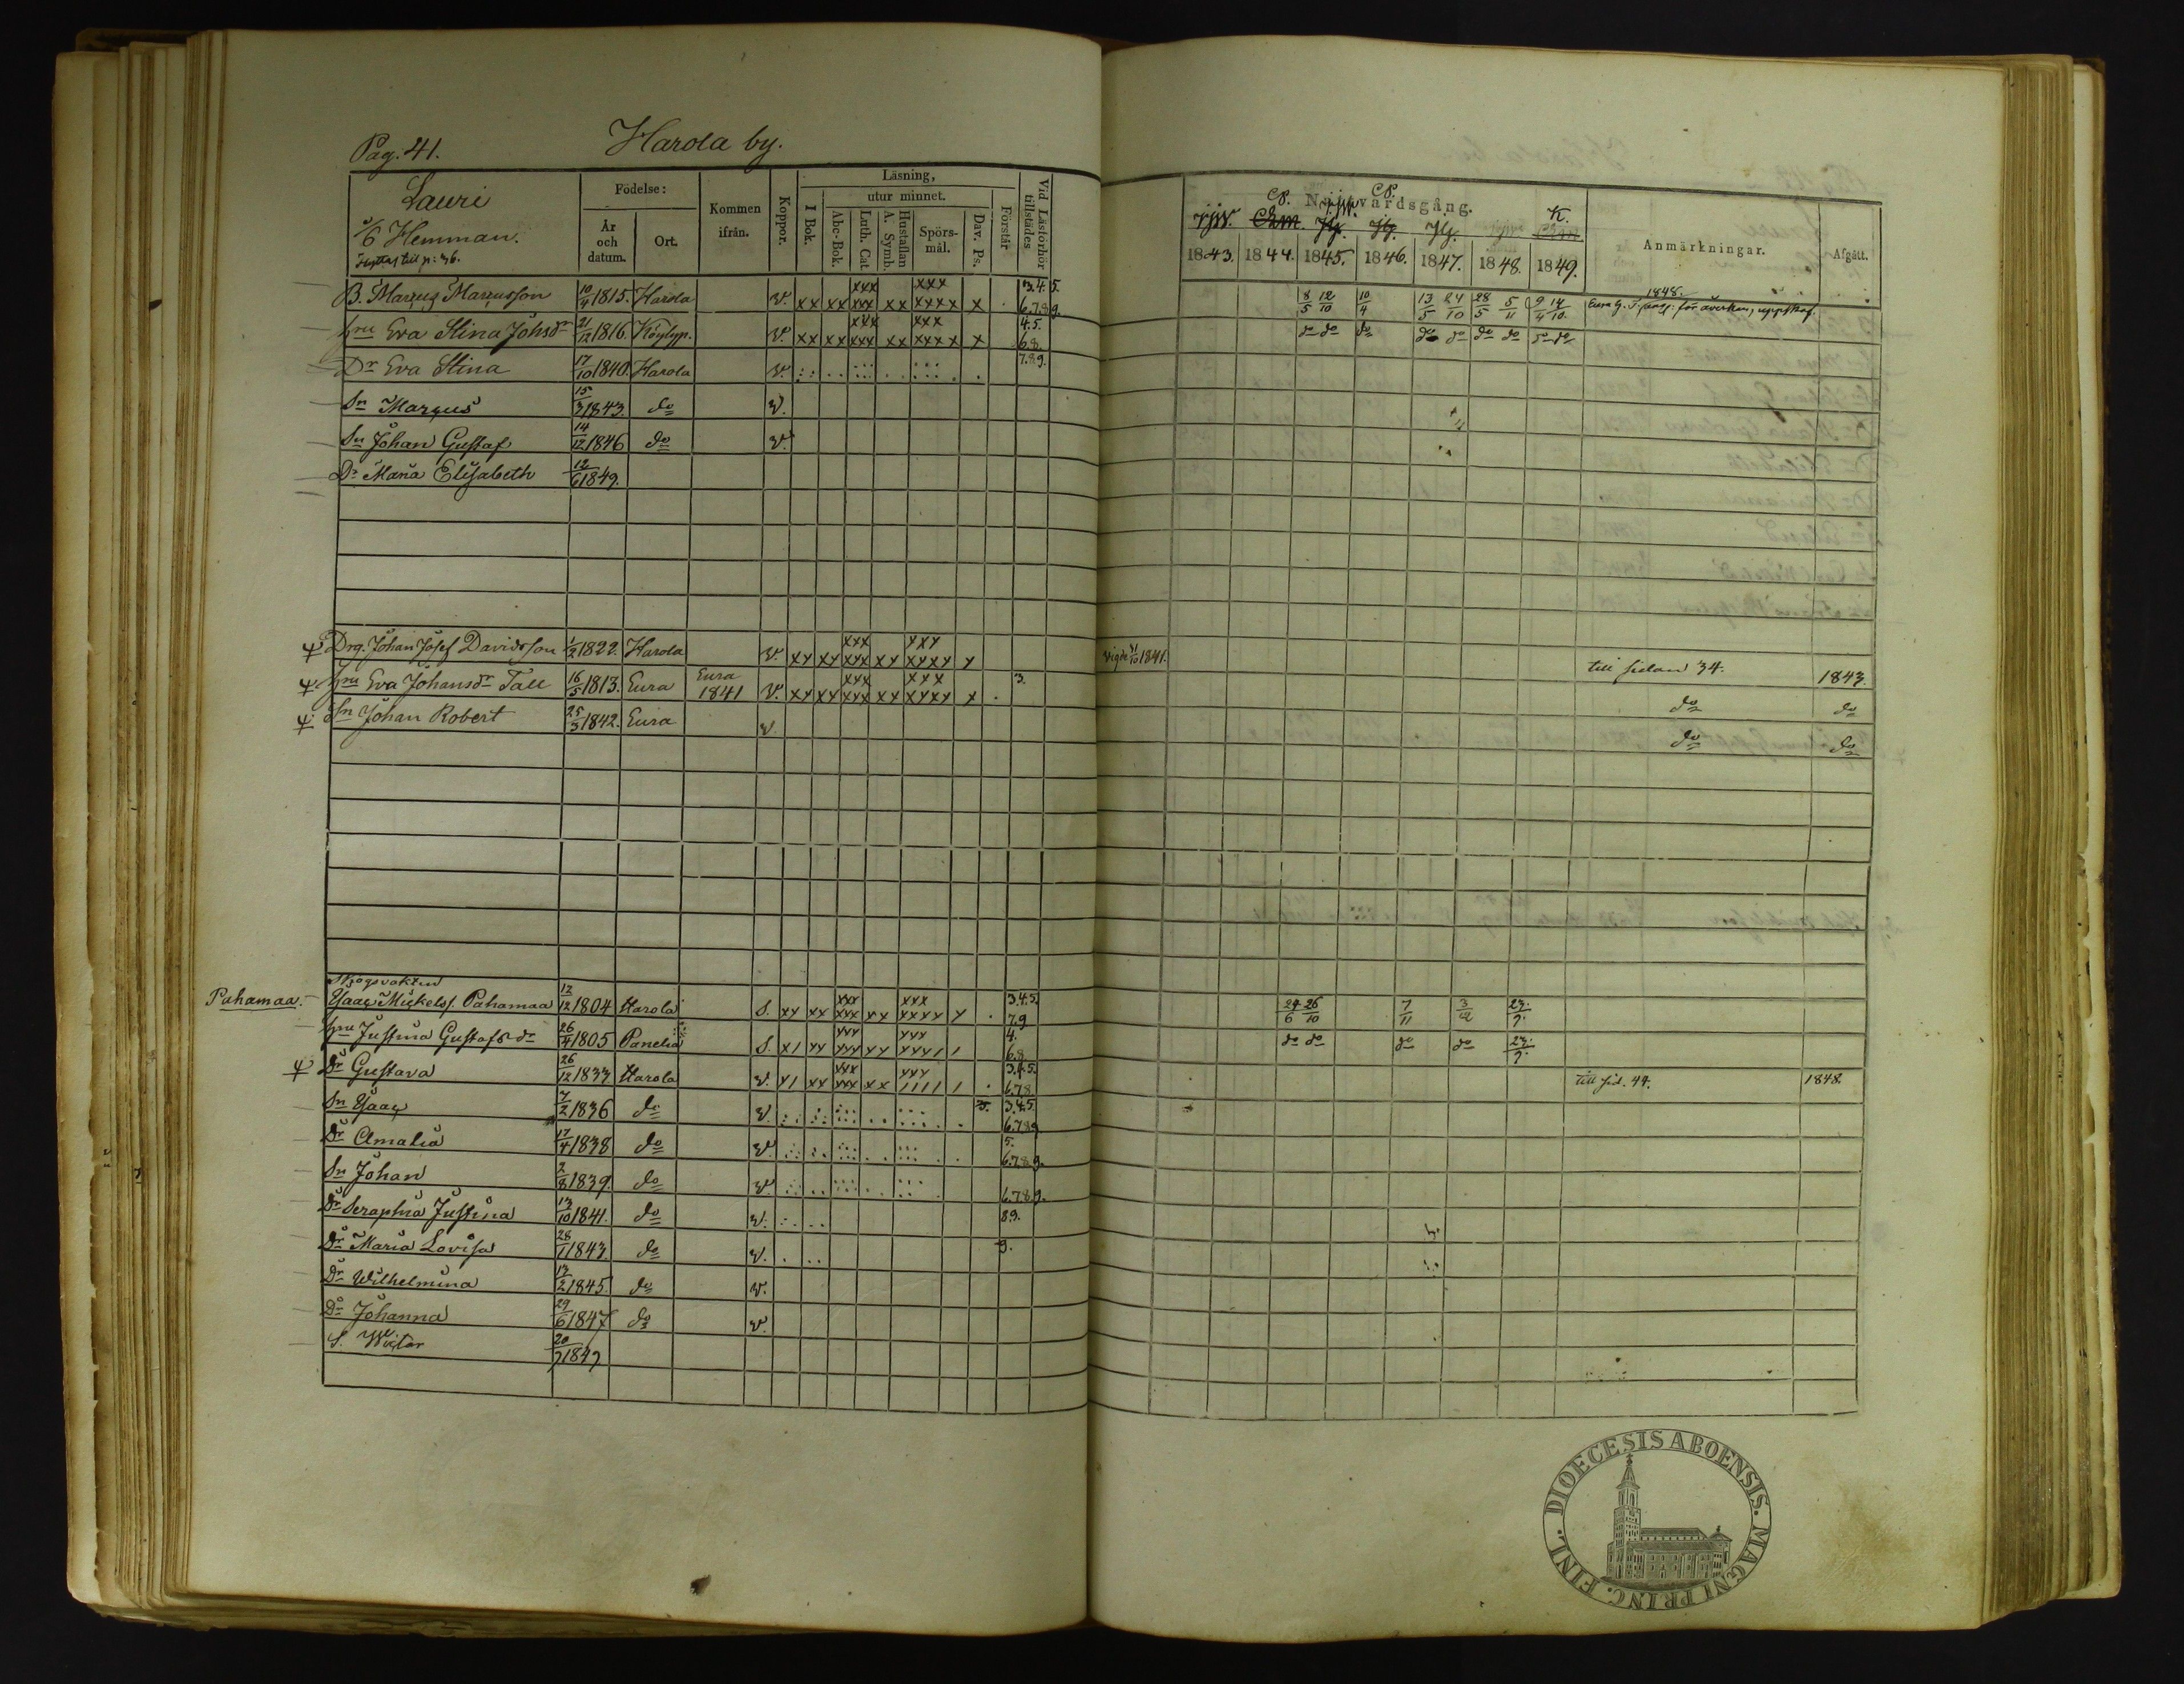 Pag. 41. Harola by.
Lauri
5/6 Hemman.
Födelse: År och datum. Ort. Kommen ifrån. Koppor. Läsning, I Bok. utur minnet. Abc-Bok. Luth. Cat. Hustaflan A. Symb. Spörs-mål. Dav. Ps. Förstår Vid Läsförhör tillstädes
Nattvardsgång. Anmärkningar. Afgått.
1843. 1844. 1845. 1846. 1847. 1848. 1849.
B. Marcus Marcusson 10/4 1815. Harola v. xx xx xxx xxx xx xxx xxxx x 3.4.5. 6.7.8.9. 8/5 12/10 10/4 13/5 24/10 28/5 5/11 9/4 14/10 1848.
Hru Eva Stina Johsdr 21/12 1816. Köylyp. v. xx xx xxx xxx xx xxx xxxx x 4.5. 6.8. do do do do do do do do do
Dr Eva Stina 17/10 1840. Harola v. 7.8.9.
Sn Marcus 15/3 1843. do v.
Sn Johan Gustaf 14/12 1846 do v.
Dr Maria Elisabeth 12/6 1849.
Drg. Johan Josef Davidsson 1/2 1822. Harola v. xx xx xxx xxx xx xxx xxxx x vigde 31/10 1841. till sidan 34. 1843.
Hru Eva Johansdr Tall 16/5 1813. Eura Eura 1841 v. xx xx xxx xxx xx xxx xxxx x . 3. do do
Sn Johan Robert 25/3 1842. Eura v. do do
Skogsvakten
Pahamaa. Isaac Mickelss. Pahamaa 12/12 1804 Harola s. xx xx xxx xxx xx xxx xxxx x . 3.4.5. 7.9 24/6 26/10 7/11 3/12 23/9.
Hru Justina Gustafsdr 26/4 1805 Panelia s. x/ xx xxx xxx xx xxx xxx/ / 4. 6.8 do do do do 23/9.
Dr Gustava 26/12 1833 Harola v. x/ xx xxx xxx xx xxx //// / . 3.4.5. 6.7.8 till sid. 44. 1848.
Sn Isaac 7/2 1836 do v. 3.4.5. 6.7.8.9
Dr Amalia 17/4 1838 do v. 5. 6.7.8.9.
Sn Johan 2/8 1839. do v. 6.7.8.9.
Dr Seraphia Justina 13/10 1841. do v. 8.9.
Dr Maria Lovisa 28/1 1843. do v. 9.
Dr Wilhelmina 13/2 1845. do v.
Dr Johanna 29/6 1847 do v.
S. Wictor 20/9 1849
DIOECESIS ABOENSIS. MAGNI PRINC. FINL.